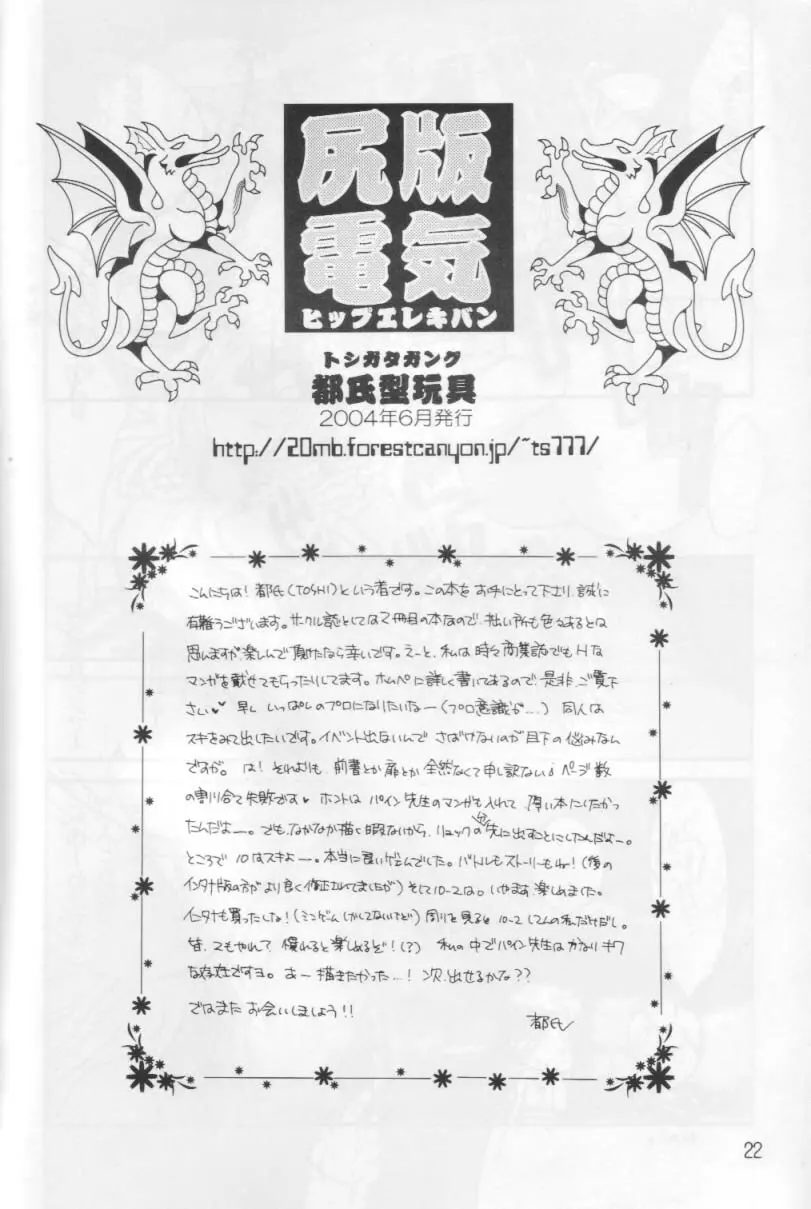 尻版
電気
ヒップエレキバン
トシガタガング
都氏型玩具
2004年6月発行
http://20mb.forestcanyon.jp/~ts777/
こんにちは！都氏(TOSHI)という者です。この本をお手にとって下さり誠に
有難うございます。サークル誌としては2冊目の本なので、拙い所も色々あるとは
思いますが楽しんで頂けたなら幸いです。えーと、私は時々商業誌でもHな
マンガを載せてもらったりしてます。ホムペに詳しく書いてあるので是非ご覧下
さい♥♥ 早くいっぱしのプロになりたいなー(プロ意識が…) 同人は
スキをみて出したいです。イベント出ないんでさばけないのが目下の悩みなん
ですが。は！それよりも前書とか扉とか全然なくて申し訳ない ページ数
の割り合て失敗です♥ ホントはパイン先生のマンガも入れて厚い本にしたかっ
たんだよー。でも、なかなか描く暇ないから、リュックの分先に出すことにしたんだよー。
ところで10はスキよー。本当に良いゲームでした。バトルもストーリーもね！(後の
インタナ版の方がより良く修正されてましたが)そして10-2は。いやます楽しめました。
インタナも買ったしな！(ミニゲームしかしてないけど)周りを見ると10-2 してんの私だけだし。
皆、2もやれって 慣れると楽しめるぞ！(？) 私の中でパイン先生はかなりキワ
な存在ですヨ。あー描きたかった…！次、出せるかな？？
ではまたお会いしましょう！！
都氏
22